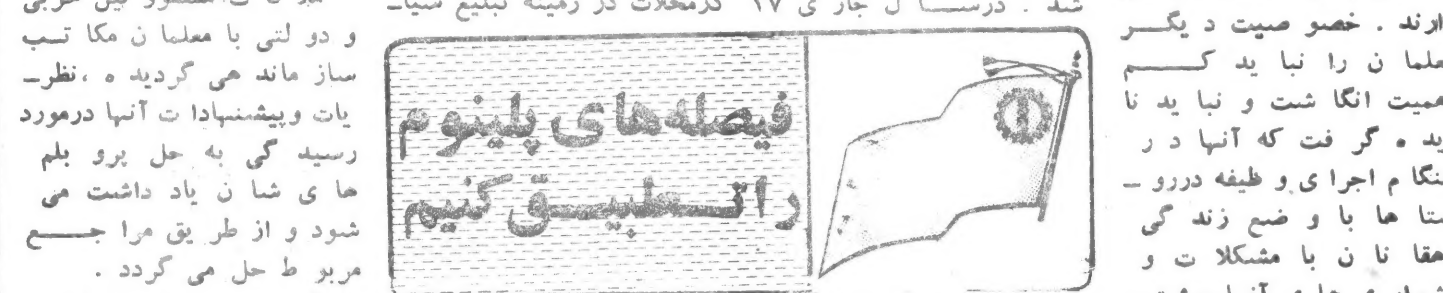 ارند . خصو صیت د یگـــر
علما ن را نبا ید کــــــم
همیت انگا شت و نبا ید نا
ید ه گر فت که آنها د ر
نگا م اجرا ی و ظیفه دررو ــ
ستا ها با و ضع زند گی
هقا نا ن با مشکلا ت و
شد . درســـا ل جار ی ۲۷ گرمحلات در زمینه تبلیغ سیاــ
فیصله‌های پلینوم
را تـــطبیـــق کنیم
و دو لتی با معلما ن مکا تــب
ساز ماند هی گردید ه ،نظرــ
یات وپیشنهادا ت آنها درمورد
رسید گی به حل پرو بلم
ها ی شا ن یاد داشت می
شود و از طر یق مرا جـــع
مربو ط حل می گردد .